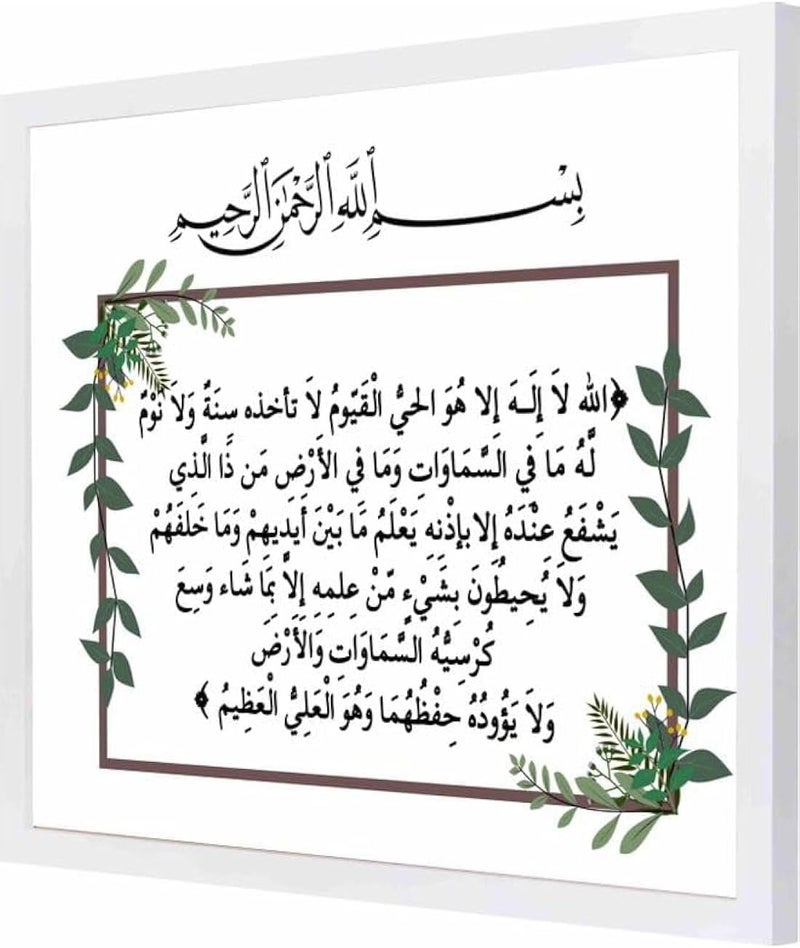 بِسْمِ ٱللَّهِ ٱلرَّحْمَٰنِ ٱلرَّحِيمِ
﴿الله لاَ إِلَـهَ إلا هُوَ الحَيُّ الْقَيُّومُ لاَ تأخذه سِنَةٌ وَلاَ نَوْمٌ
لَّهُ مَا فِي السَّمَاوَاتِ وَمَا فِي الأَرْضِ مَن ذَا الَّذِي
يَشْفَعُ عِنْدَهُ إلا بإذْنِهِ يَعْلَمُ مَا بَيْنَ أَيدِيهِمْ وَمَا خَلفَهُمْ
وَلاَ يُحِيطُونَ بِشَيْءٍ مِّنْ عِلمِهِ إلاَّ بِمَا شَاء وَسِعَ
كُرْسِيُّهُ السَّمَاوَاتِ وَالأَرْضَ
وَلاَ يَؤُودُهُ حِفْظُهُمَا وَهُوَ الْعَلِيُّ الْعَظِيمُ ﴾